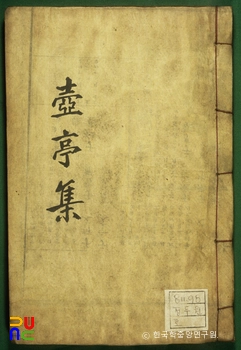 壺亭集
© 한국학중앙연구원